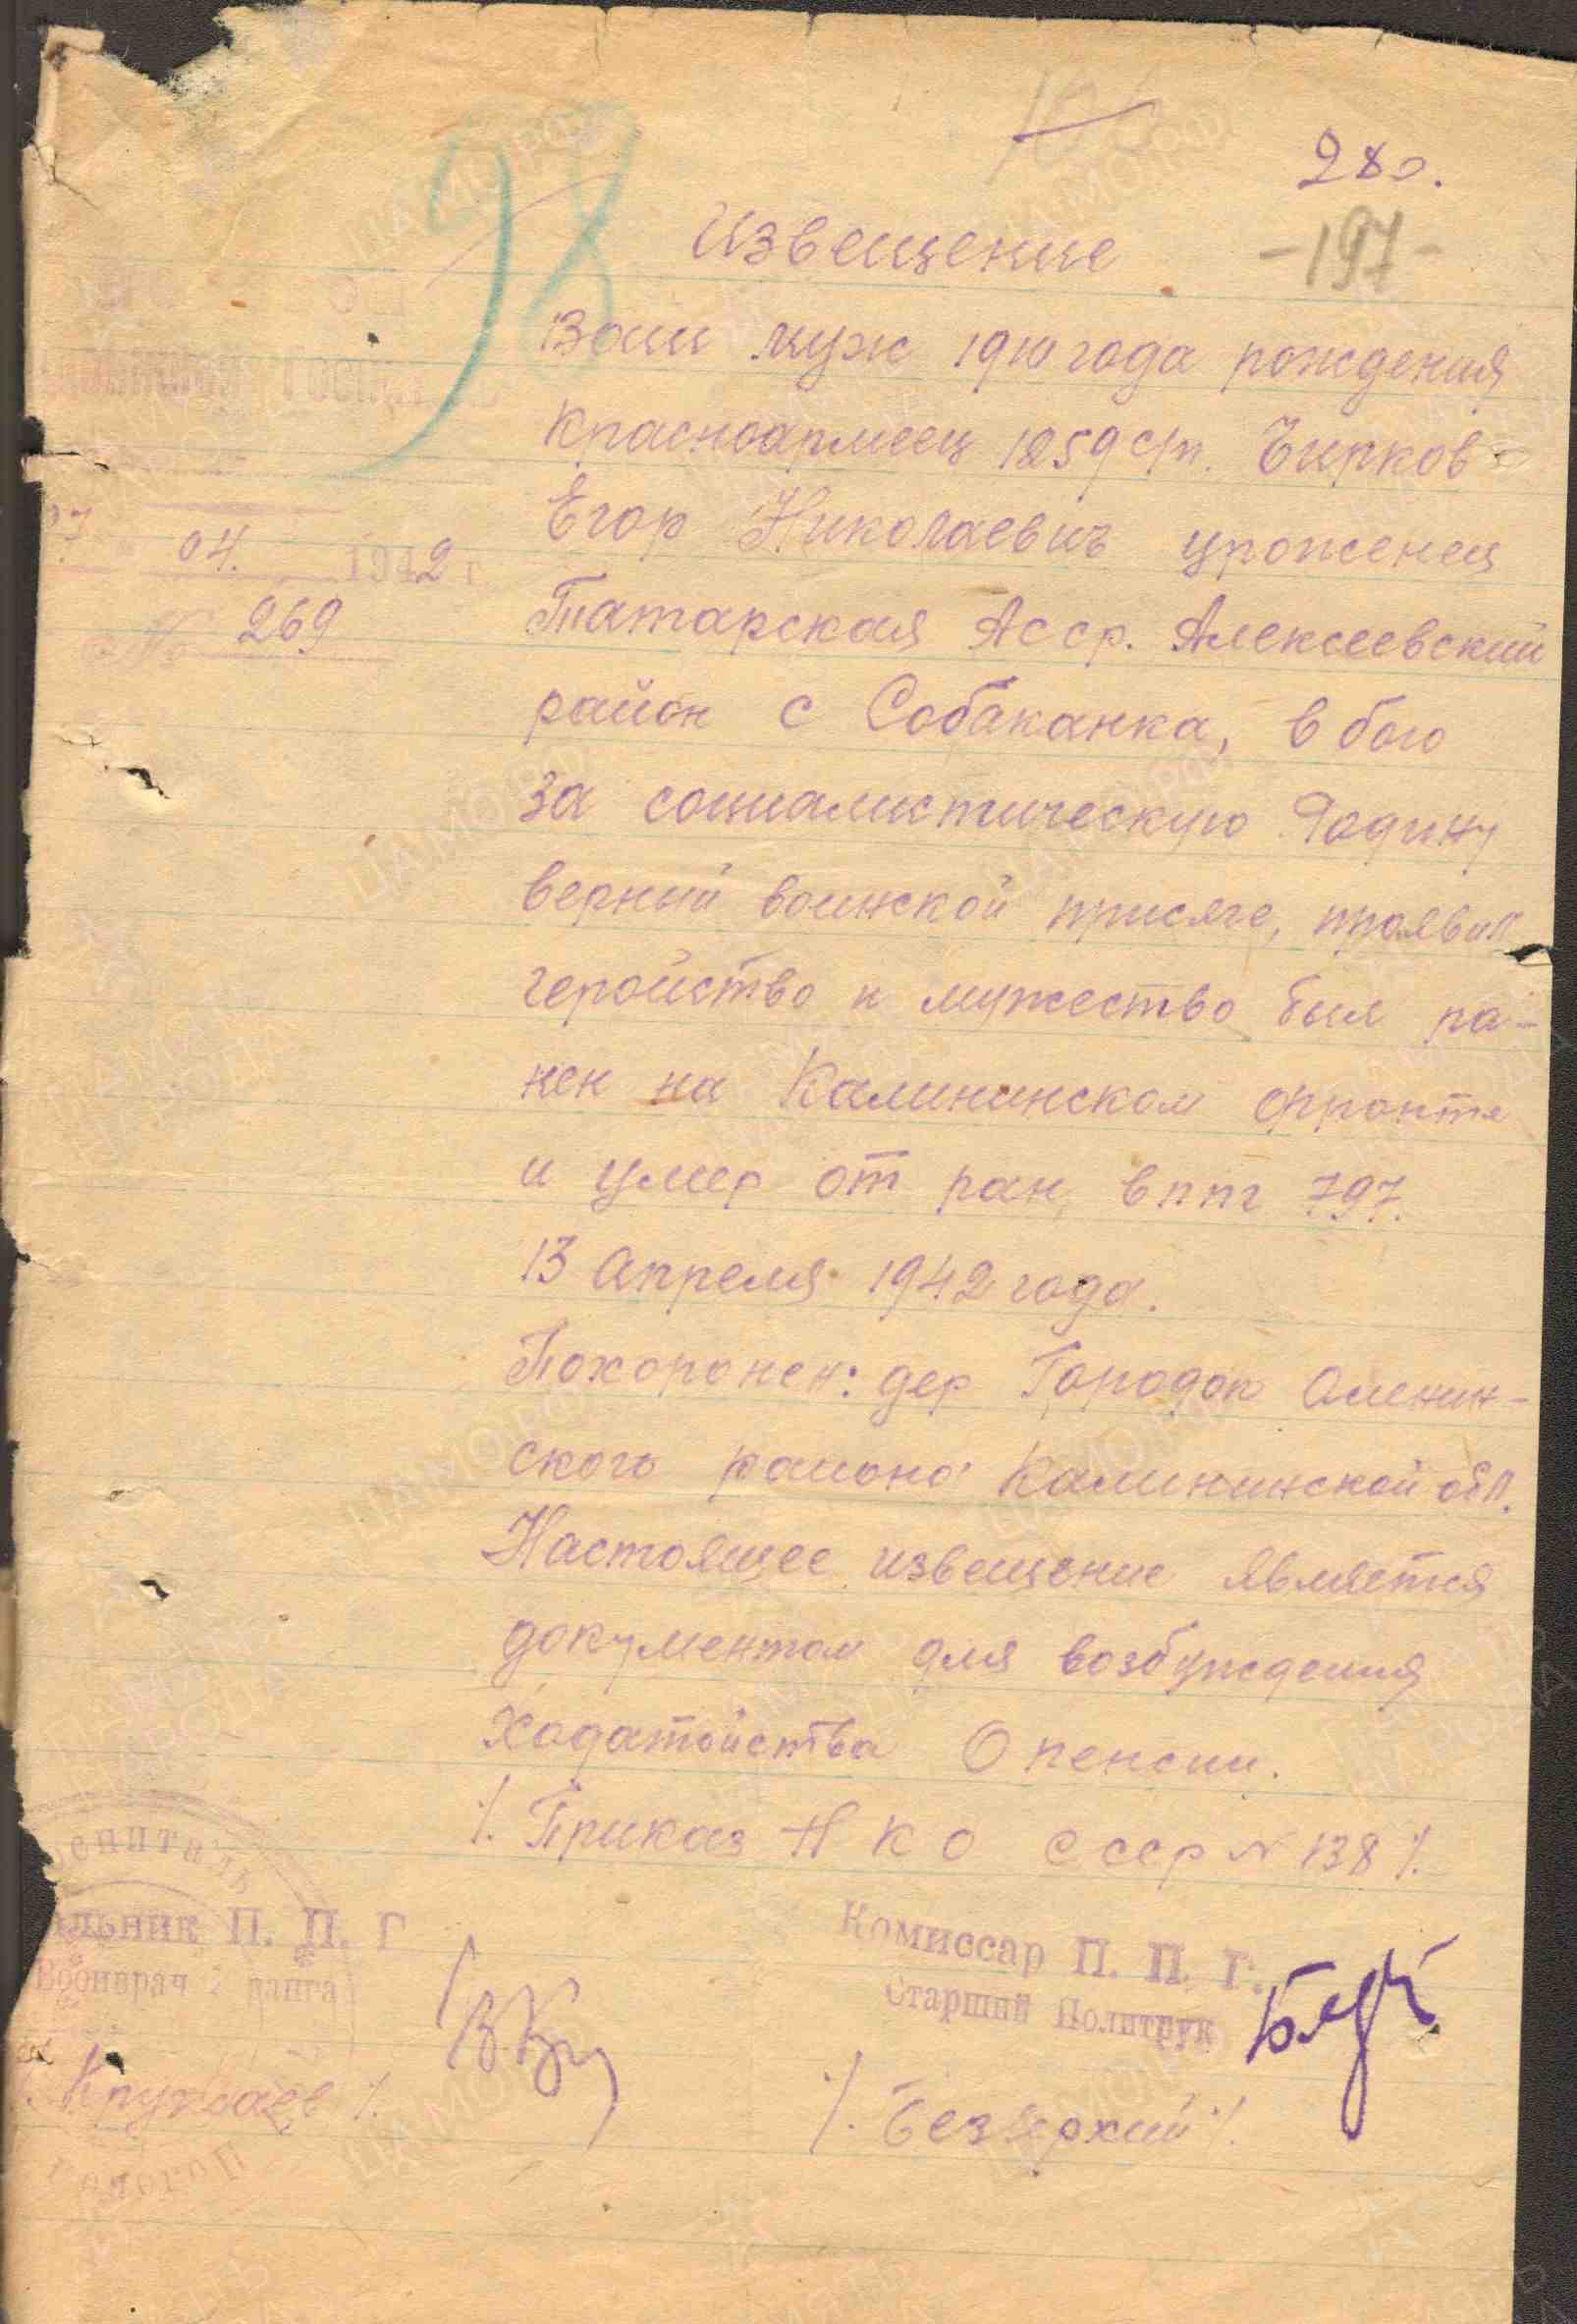 98
280.
-197-
Извещение
Ваш муж 1910 года рождения
красноармеец 1259 с/п. Чирков
Егор Николаевич уроженец
Татарская Асср. Алексеевский
район с Собаканка, в бою
за социалистическую Родину
верный воинской присяге, проявил
геройство и мужество был ра-
нен на Калининском фронте
и умер от ран, в ппг 797.
13 Апреля 1942 года.
Похоронен: дер Городок Оленин-
ского района Калининской обл.
Настоящее извещение является
документом для возбуждения
Ходатойства О пенсии.
/. Приказ Н К О ссср N 138 /.
04. 1942 г
№ 269
альник П. П. Г
Военврач 2 ранга
Комиссар П. П. Г.
Старший Политрук